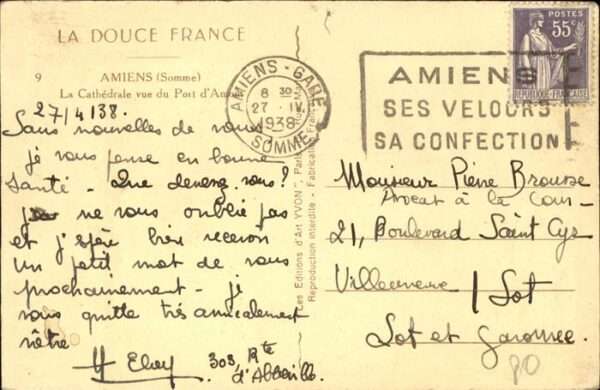 LA DOUCE FRANCE
9 AMIENS (Somme)
La Cathédrale vue du Port d'Amont
27/4 138.
Sans nouvelles de vous
je vous pense en bonne
santé - Que devenez-vous?
je ne vous oublie pas
et j'espère bien recevoir
un petit mot de vous
prochainement - je
vous quitte très amicalement
vôtre
303, Rte
d'Abbeville
Les Editions d'Art "YVON", Paris
Reproduction interdite - Fabrication Française
AMIENS - GARE
8 30
27 · IV
1938
SOMME
AMIENS
SES VELOURS
SA CONFECTION
POSTES
55c
REPUBLIQUE FRANÇAISE
Monsieur Pierre Brousse
Avocat à la Cour -
21, Boulevard Saint Cyr
Villeneuve / Lot
Lot et Garonne